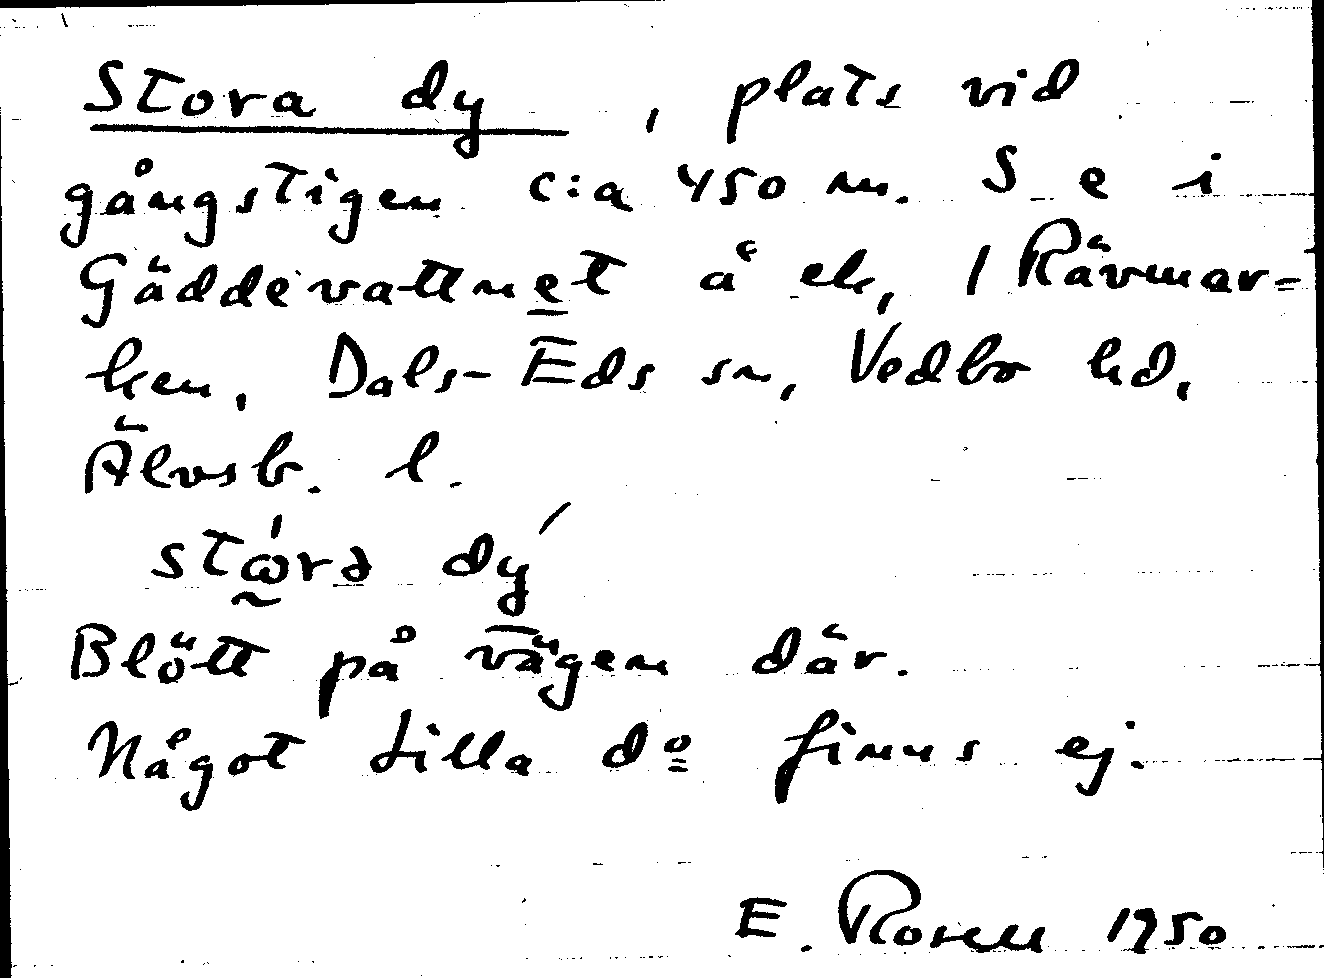 Stora dy, plats vid
gångstigen c:a 450 m. S e i
Gäddevattnet å ek, 1 Rävmar-
ken, Dals-Eds sn, Vedbo hd,
Älvsb. l.
Blött på vägen där.
Något Lilla dº finns ej.
E. Rosell 1950